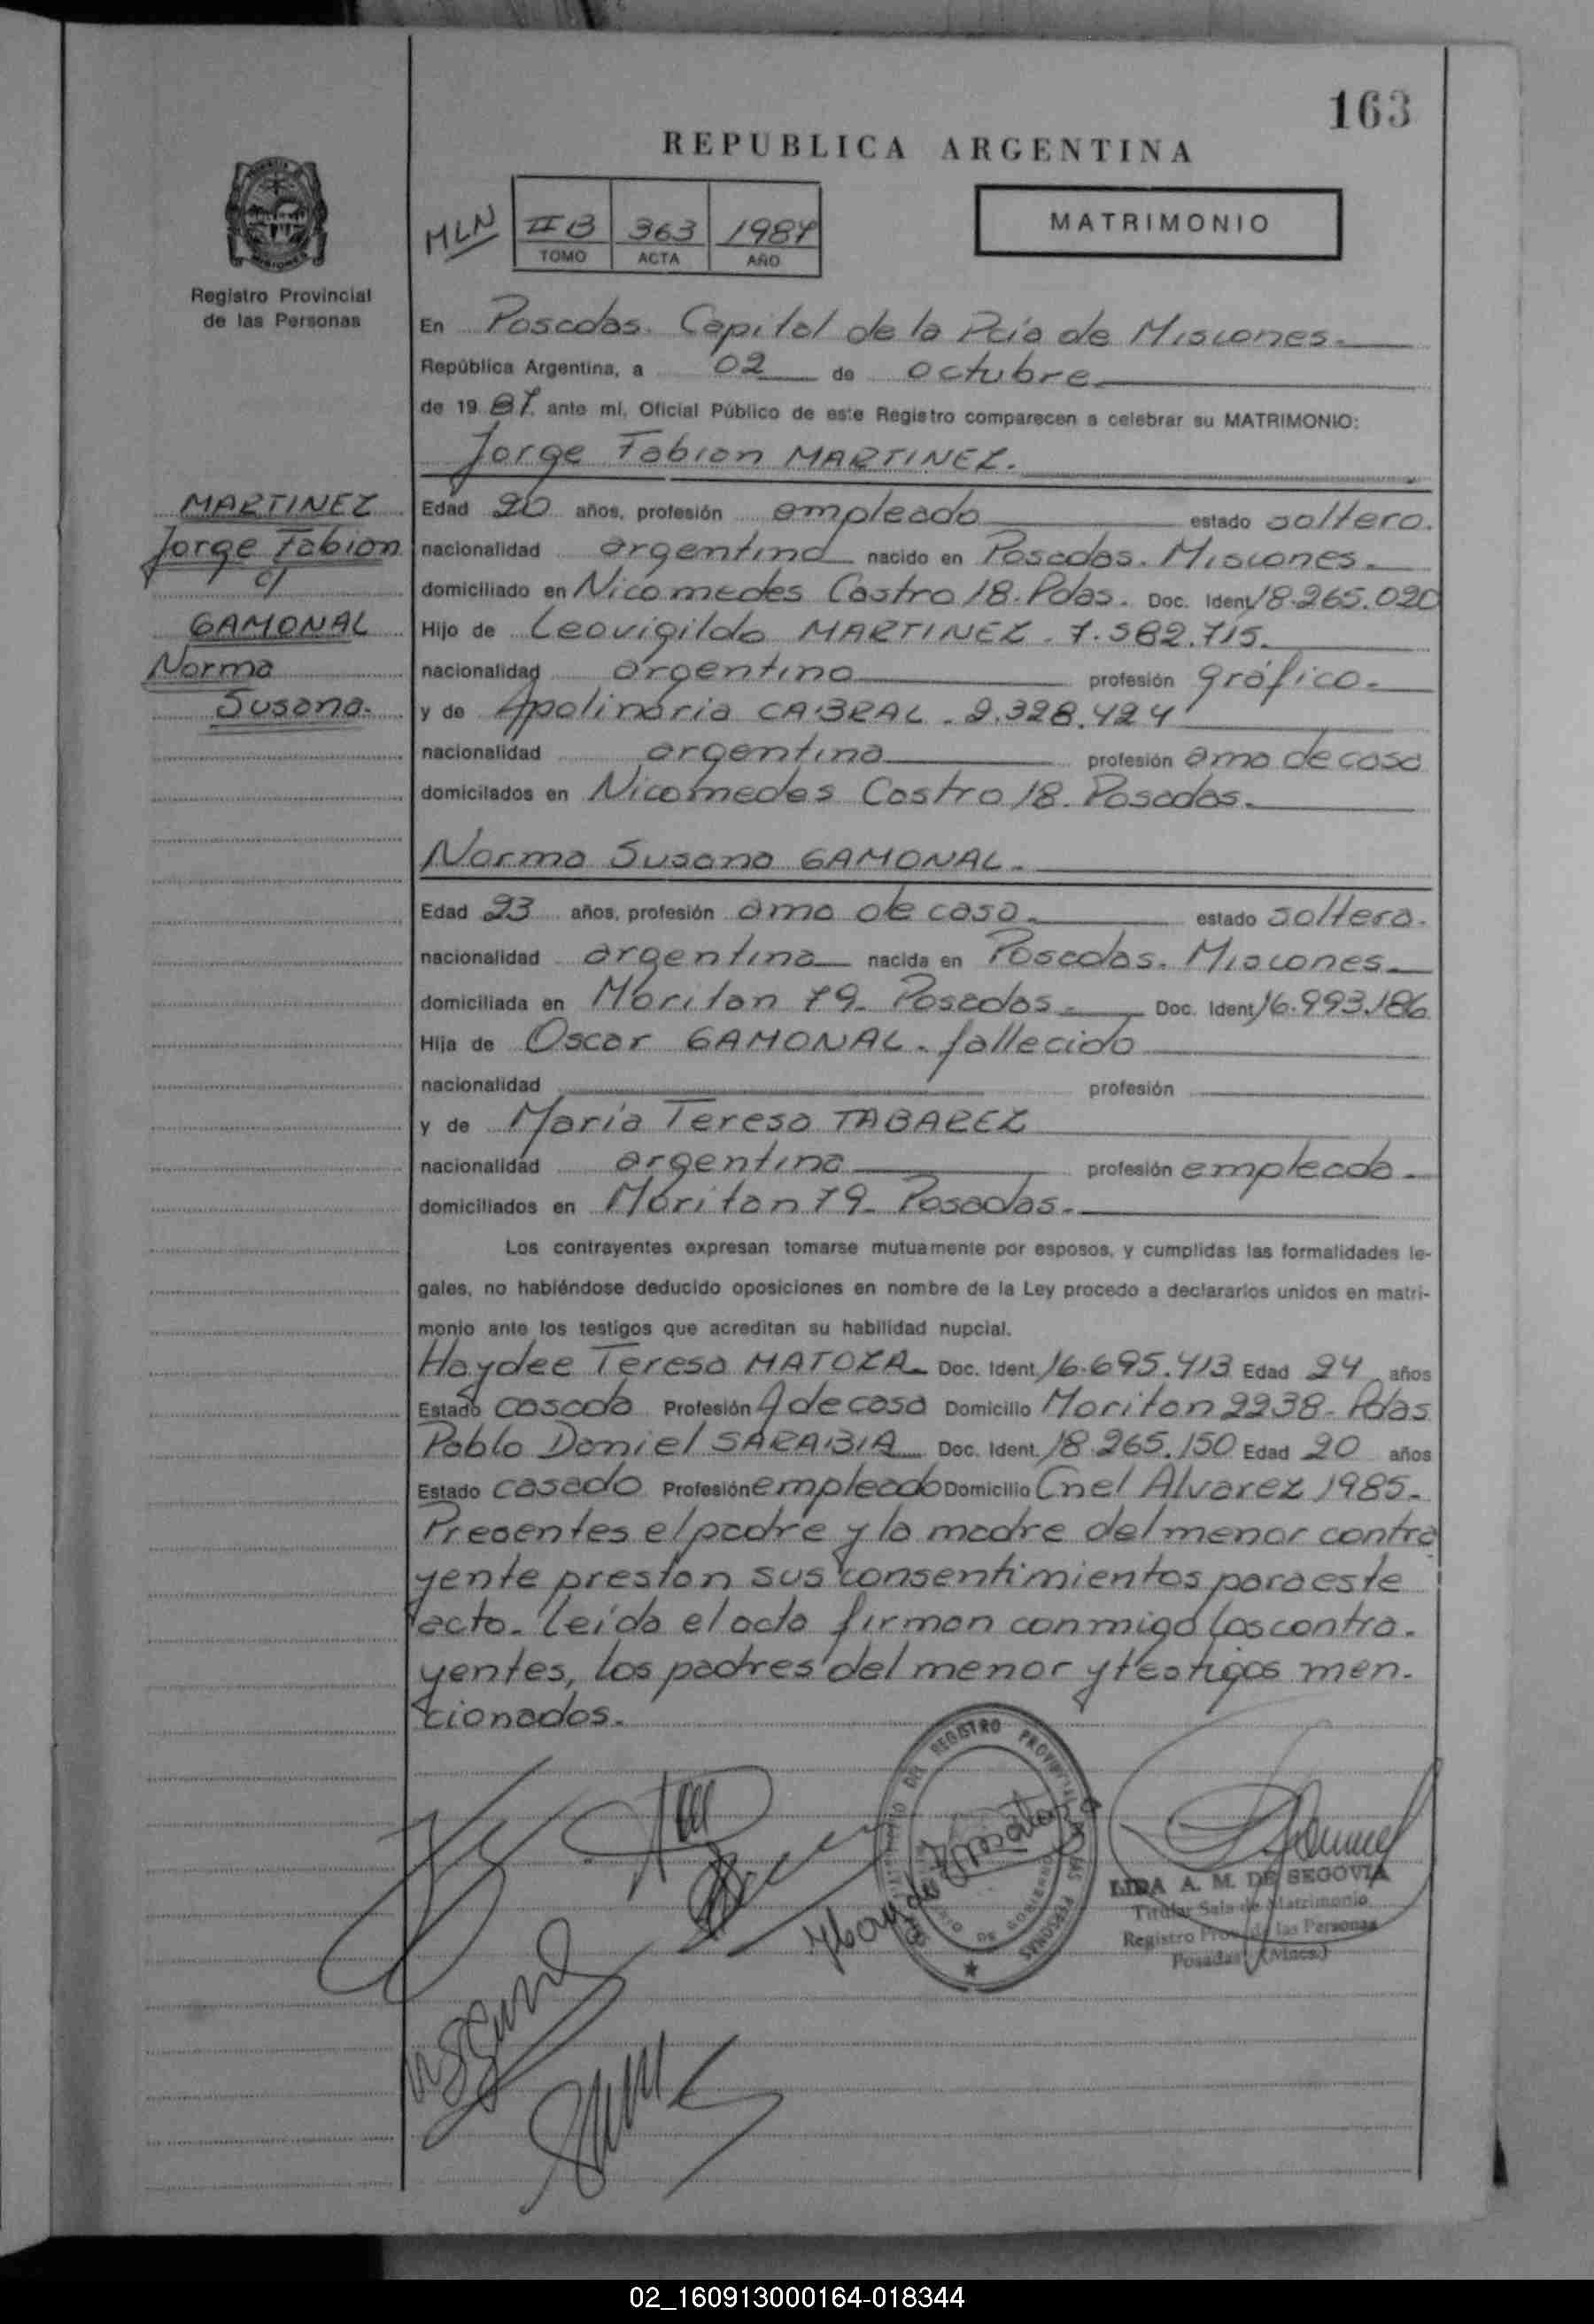 163
REPUBLICA ARGENTINA
MLN
II B 363 1987
TOMO ACTA AÑO
MATRIMONIO
Registro Provincial
de las Personas
En Posadas. Capital de la Pcia de Misiones.
República Argentina, a 02 de octubre
de 19 87 ante mi, Oficial Público de este Registro comparecen a celebrar su MATRIMONIO:
Jorge Fabian MARTINEZ.
MARTINEZ
Jorge Fabian
c/
GAMONAL
Norma
Susana.
Edad 20 años, profesión empleado estado soltero.
nacionalidad argentina nacido en Posadas. Misiones.
domiciliado en Nicomedes Castro 18. Pdas. Doc. Ident 18.265.020
Hijo de Leovigildo MARTINEZ. 7.582.715.
nacionalidad argentina profesión gráfico.
y de Apolinaria CABRAL. 2.328.424
nacionalidad argentina profesión ama de casa
domicilados en Nicomedes Castro 18. Posadas.
Norma Susana GAMONAL.
Edad 23 años, profesión ama de casa. estado soltera.
nacionalidad argentina nacida en Posadas. Misiones.
domiciliada en Moritan 79. Posadas. Doc. Ident 16.993.186
Hija de Oscar GAMONAL. fallecido
nacionalidad profesión
y de María Teresa TABAREZ
nacionalidad argentina profesión empleada.
domiciliados en Moritan 79. Posadas.
Los contrayentes expresan tomarse mutuamente por esposos, y cumplidas las formalidades le-
gales, no habiéndose deducido oposiciones en nombre de la Ley procedo a declararlos unidos en matri-
monio ante los testigos que acreditan su habilidad nupcial.
Haydee Teresa MATOZA Doc. Ident 16.695.413 Edad 24 años
Estado casada Profesión A de casa Domicilio Moritan 2238. Pdas
Pablo Daniel SARABIA Doc. Ident. 18.265.150 Edad 20 años
Estado casado Profesión empleado Domicilio Cnel Alvarez 1985.
Presentes el padre y la madre del menor contra
yente prestan sus consentimientos para este
acto. Leída el acta firman conmigo los contra.
yentes, los padres del menor y testigos men.
cionados.
REGISTRO PROVINCIAL DE LAS PERSONAS
LIDA A. M. DE SEGOVIA
Titular Sala de Matrimonio
Registro Prov. de las Personas
Posadas (Mnes.)
02_160913000164-018344